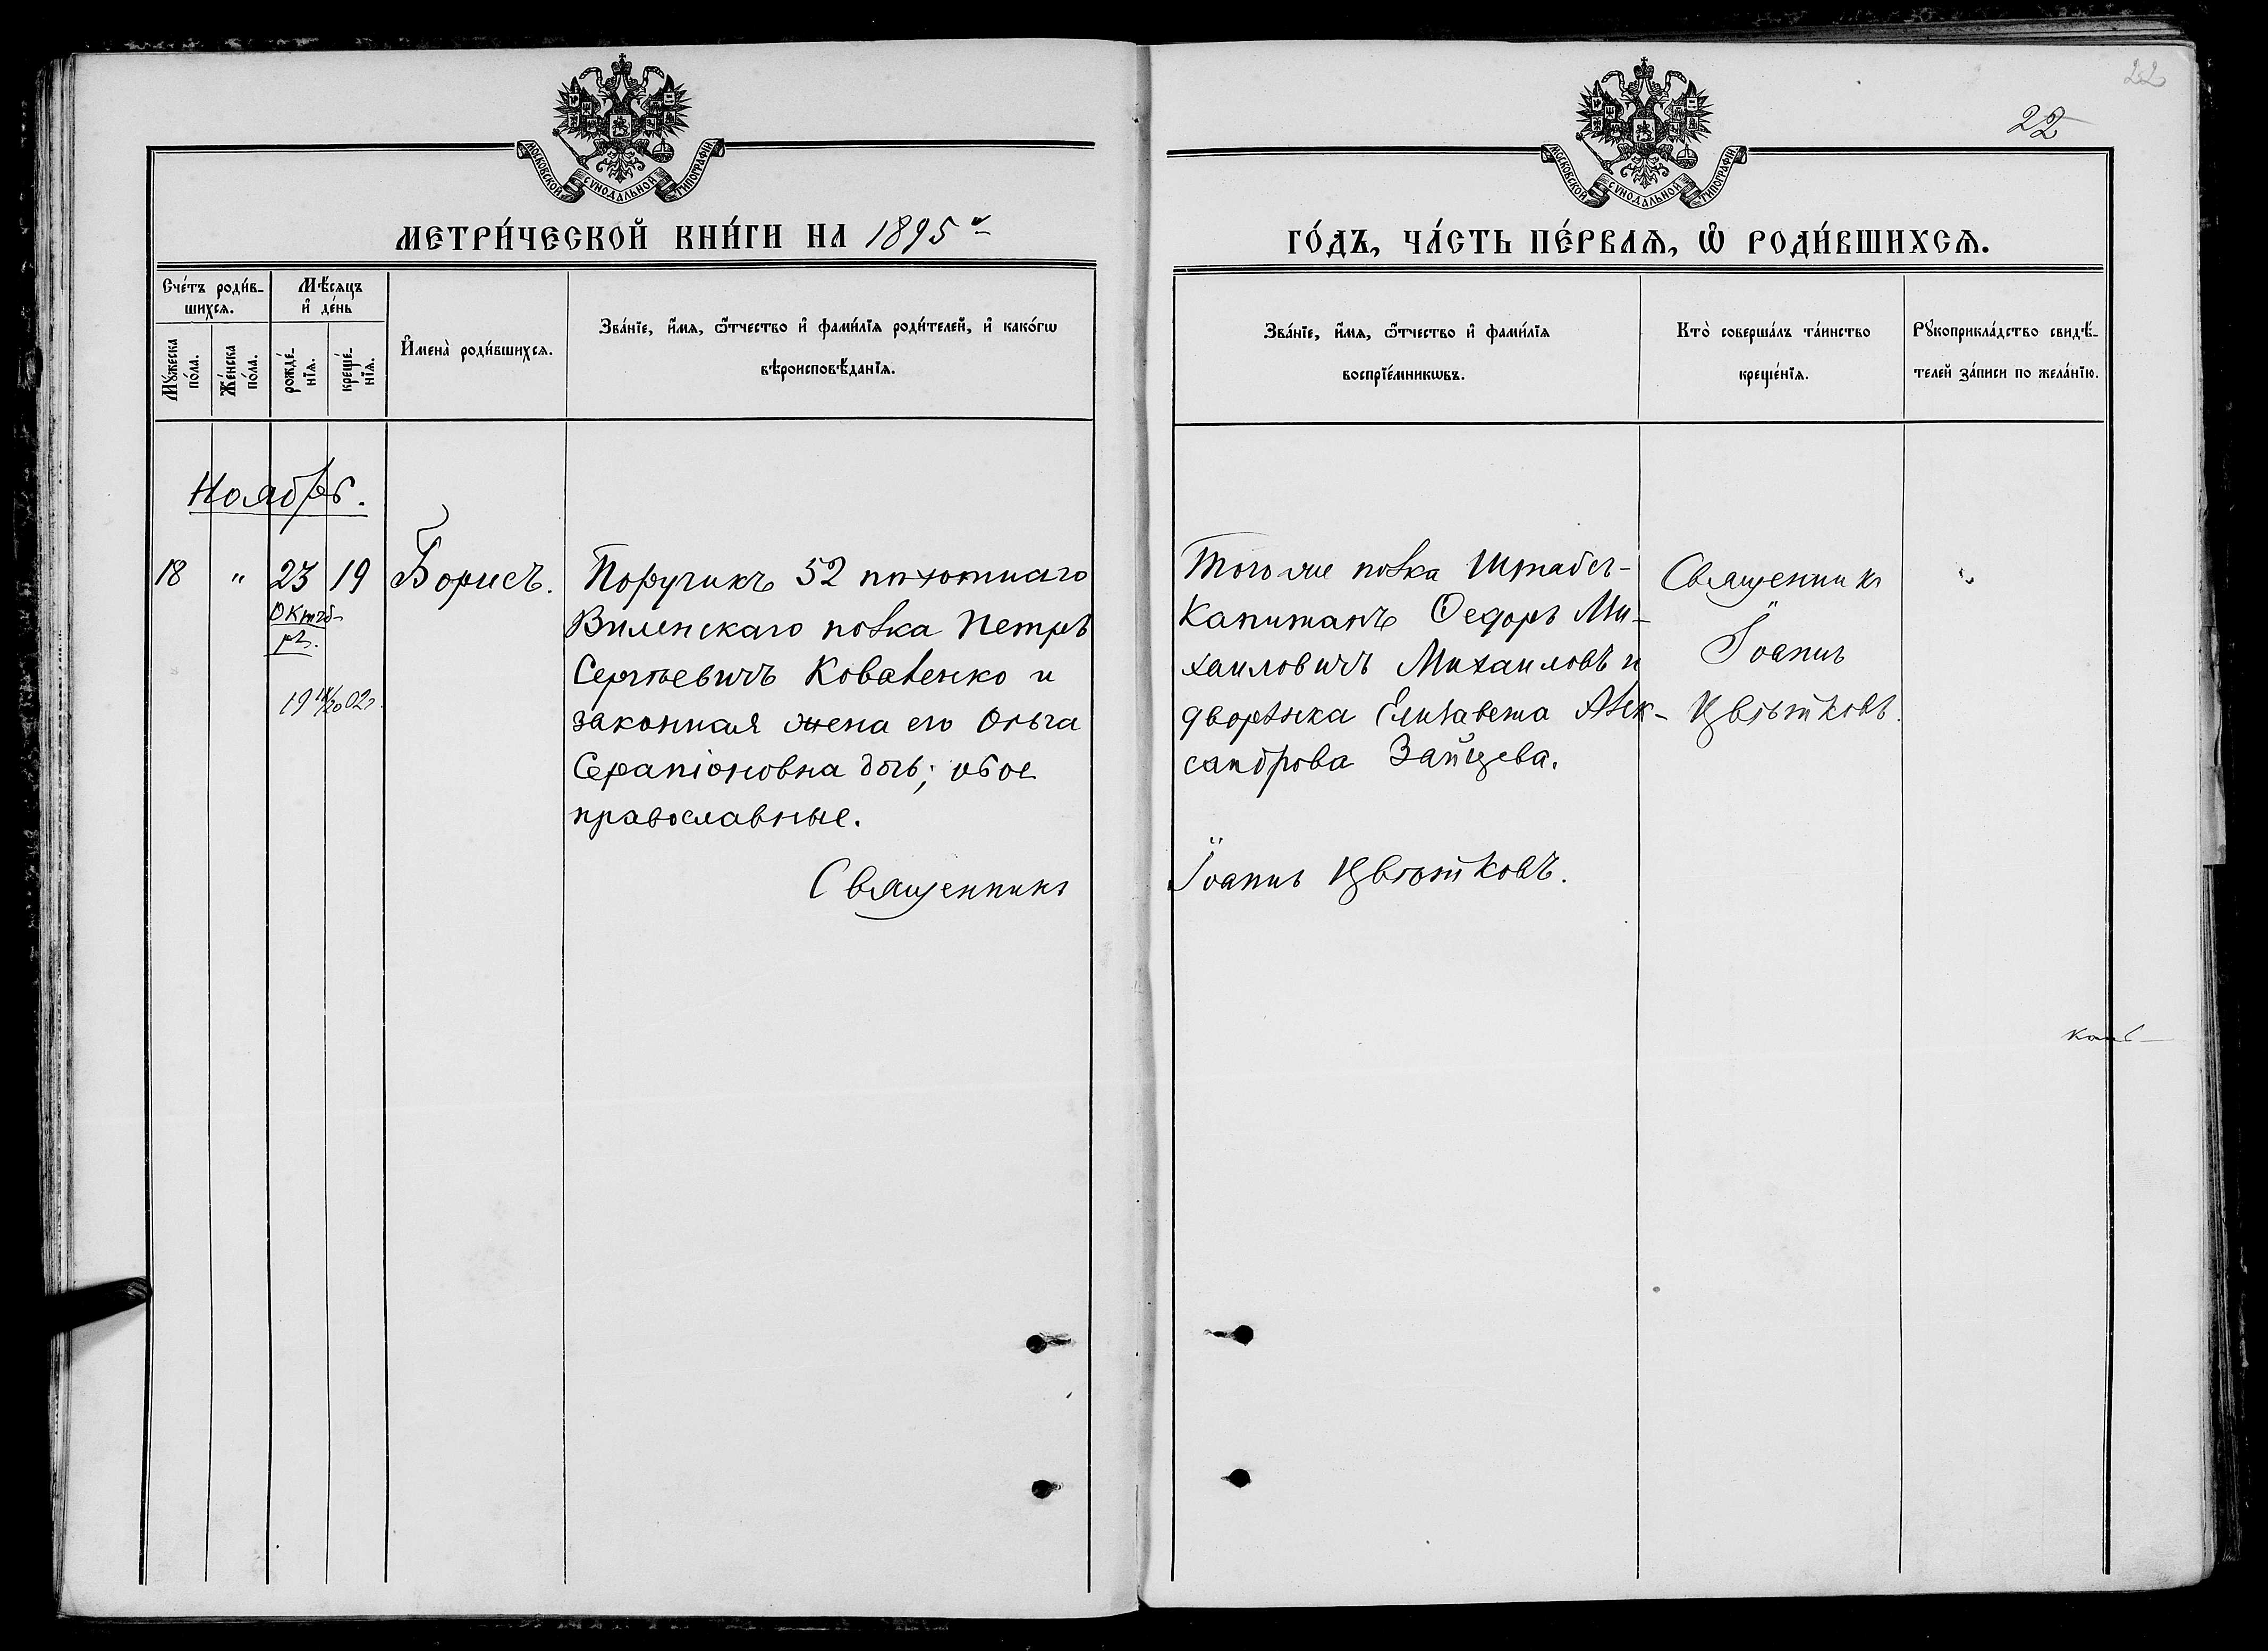 22
22
МОСКОВСКОЙ СУНОДАЛЬНОЙ ТИПОГРАФІИ
МОСКОВСКОЙ СУНОДАЛЬНОЙ ТИПОГРАФІИ
МЕТРИ́ЧЕСКОЙ КНИ́ГИ НА 1895й
ГО́ДЪ, ЧА́СТЬ ПЕ́РВАѦ, Ѽ РОДИ́ВШИХСѦ.
Сче́тъ роди́в-
шихсѧ.
Мѣ́сяцъ
и҆ де́нь
Мꙋ́жеска
по́ла.
Же́нска
по́ла.
рожде́-
нїѧ.
креще́-
нїѧ.
И҆мена̀ роди́вшихсѧ.
Зва́нїе, и҆́мѧ, ѻ҆́тчество и҆ фами́лїѧ роди́телей, и҆ како́гѡ
вѣроисповѣ́данїѧ.
Зва́нїе, и҆́мѧ, ѻ҆́тчество и҆ фами́лїѧ
воспрїе́мникѡвъ.
Кто̀ соверша́лъ та́инство
креще́нїѧ.
Рꙋкоприкла́дство свидѣ́-
телей за́писи по жела́нїю.
Ноябрь.
18 " 23 19 Борисъ.
Октяб-
рь.
Поручикъ 52 пѣхотнаго
Виленскаго полка Петръ
Сергѣевичъ Коваленко и
законная жена его Ольга
Серапіоновна дочь; обое
православные.
Священникъ
Того же полка Штабсъ-
Капитанъ Ѳедоръ Ми-
хаиловичъ Михаиловъ и
дворянка Елизавета Алек-
сандрова Зайцева.
Іоаннъ Цвѣтковъ.
Священникъ
Іоаннъ
Цвѣтковъ.